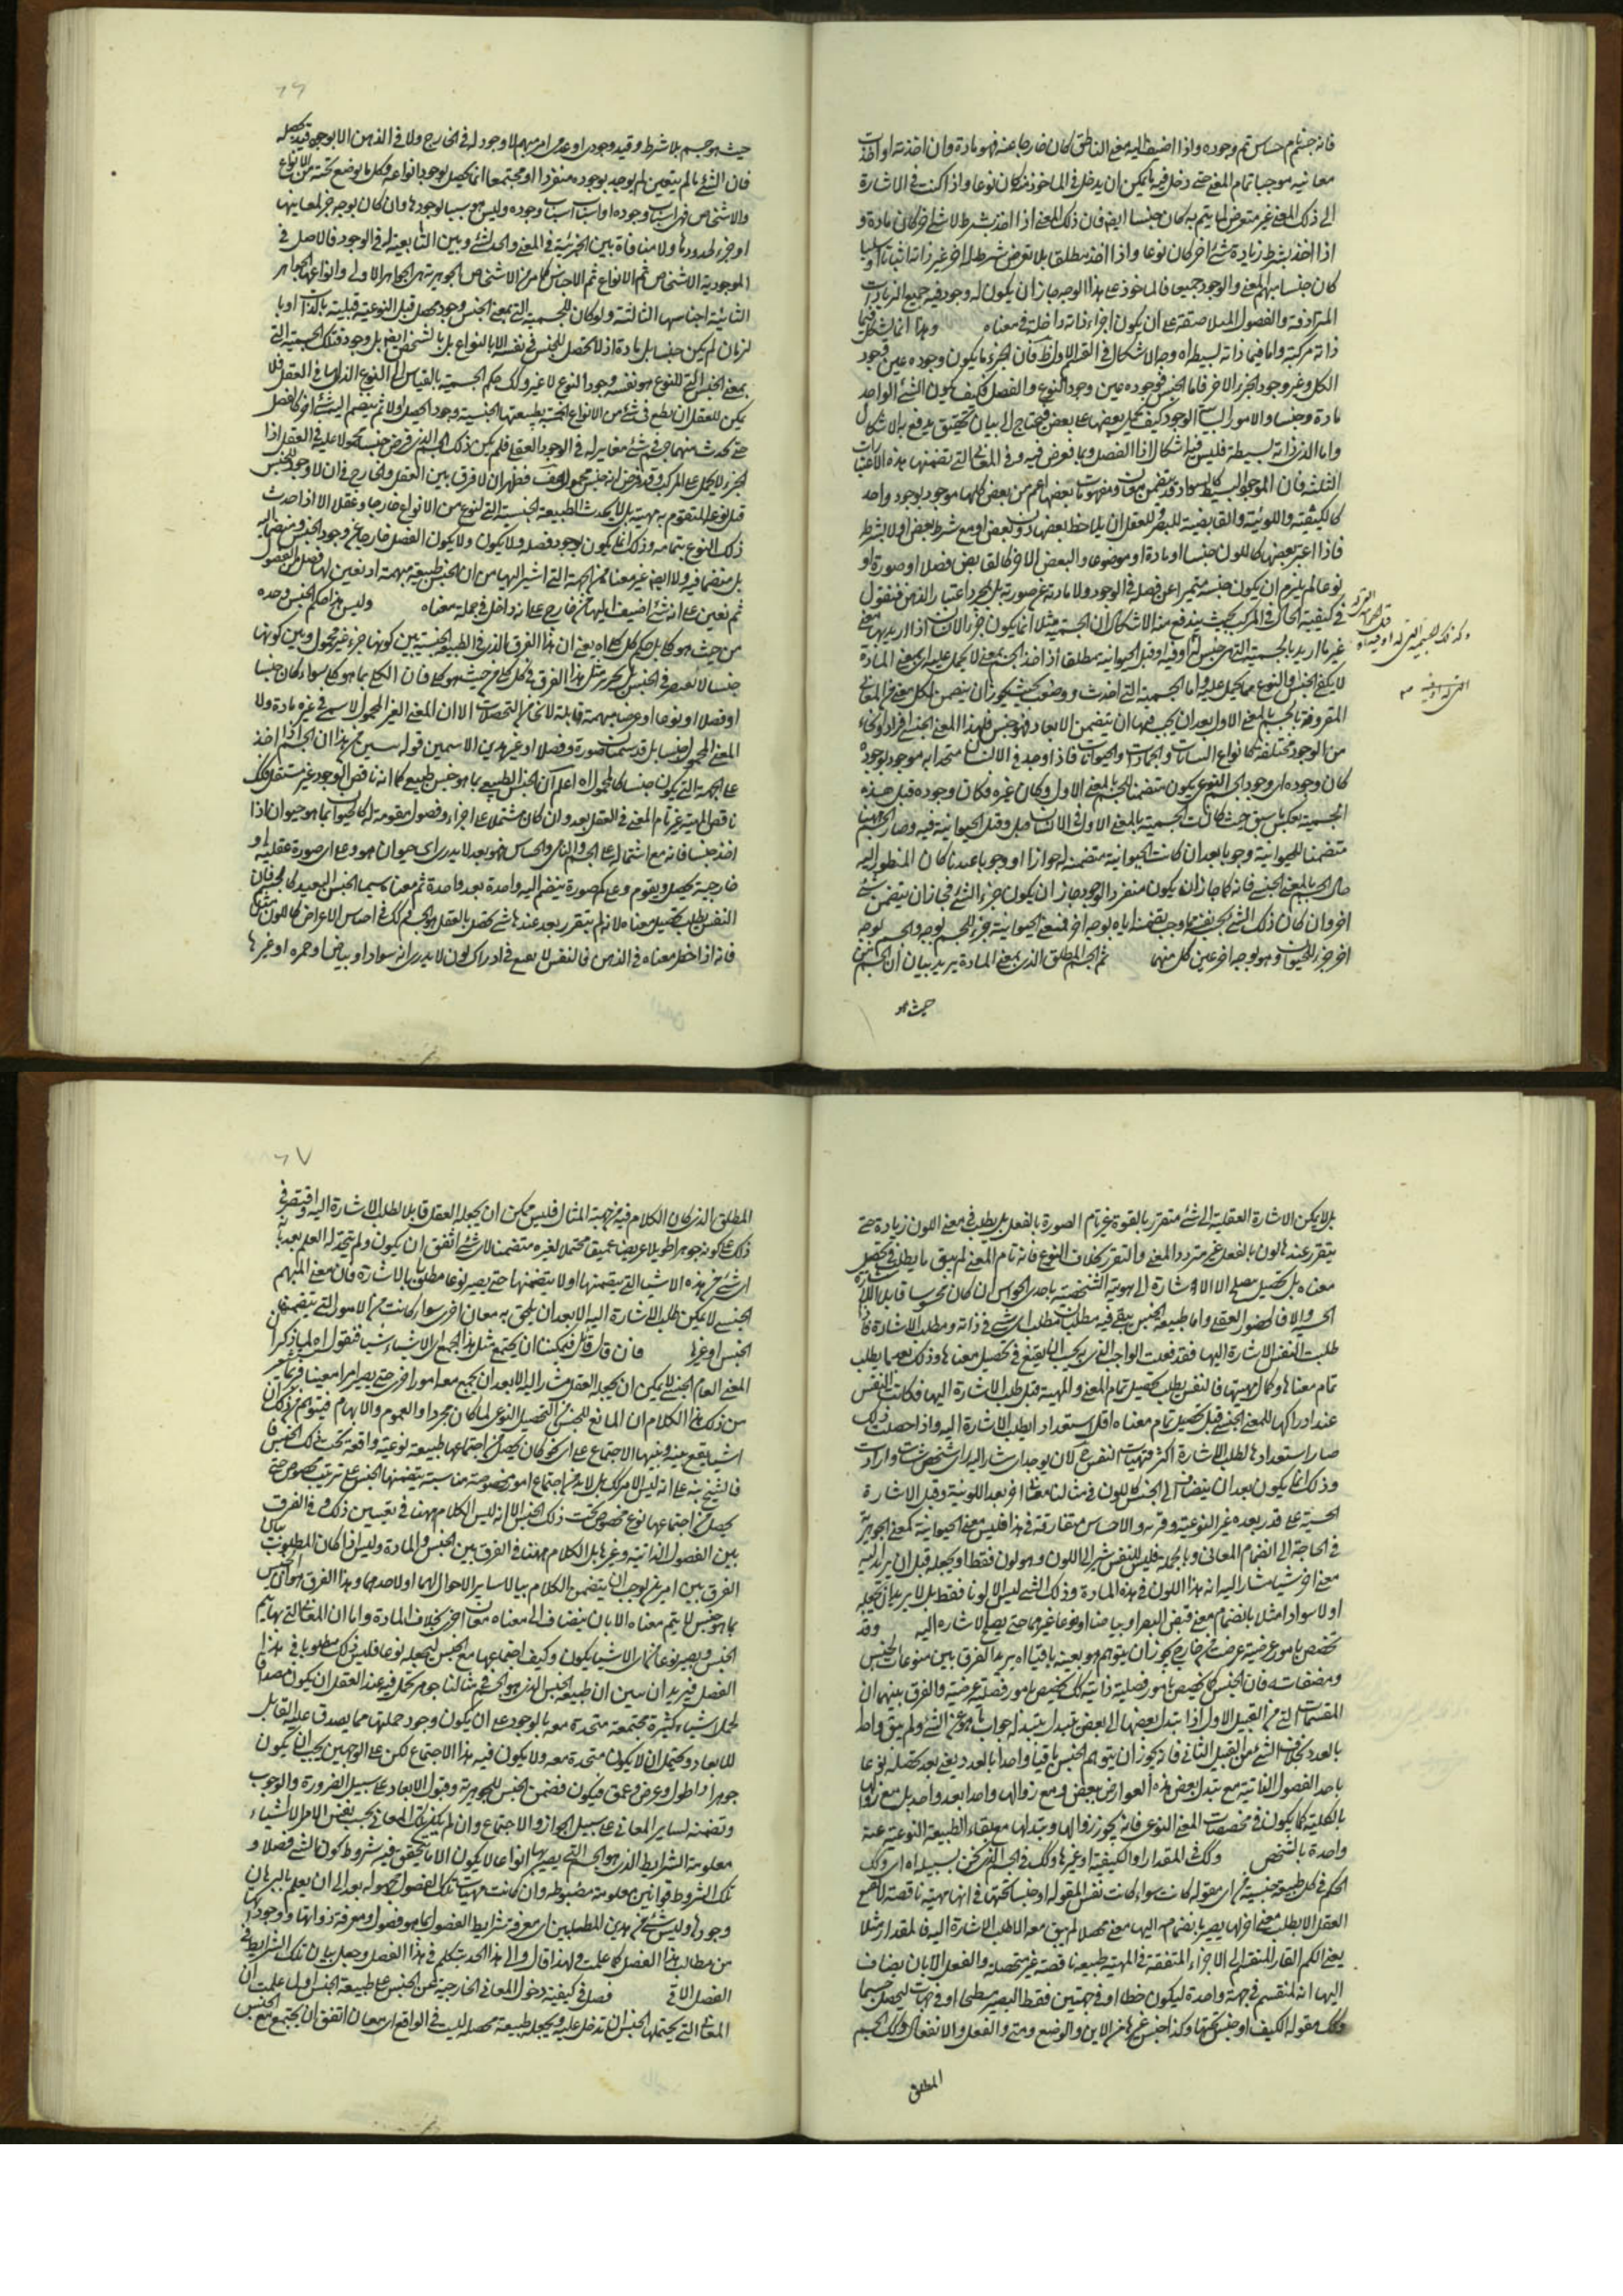 فانه جسم حساس تم وجوده واذا اضيف اليه معنى الناطق كان خارجا عنه فهو مادة وان اخذته او اخذت
معانيه موجبا تمام المعنى حتى دخل فيه ما يمكن ان يدخل في الماخوذ منه كان نوعا واذا كنت في الاشارة
الى ذلك المعنى غير متعرض لما يتم به كان جنسا ايضا فان ذلك المعنى اذا اخذ بشرط لا شئ اخر كان مادة و
اذا اخذ بشرط زيادة شئ اخر كان نوعا واذا اخذ مطلقا بلا تعرض شرط له اخر غير ذاته اثباتا او سلبا
كان جنسا مبهم المعنى والوجود جميعا فالماخوذ على هذا الوجه جاز ان يكون له وجود فيه جميع الزيادات
المترادفة والفصول المتلاصقة على ان يكون اجزاء ذاته داخلة في معناه وهذا انما يشكل فيما
ذاته مركبة واما فيما ذاته بسيطة اه وجه الاشكال في القسم الاول ظ فان الجزء ما يكون وجوده غير وجود
الكل وغير وجود الجزء الاخر فاما الجنس فوجوده عين وجود النوع والفصل فكيف يكون الشئ الواحد
مادة وجنسا والامور الوجود كيف يحمل بعضها على بعض فيحتاج الى بيان تحقيق يدفع به الاشكال
واما الذي ذاته بسيطة فليس فيه اشكال اذا الفصل وبما نعرض فيه وفي المعاني التي تضمنها هذه الاعتبارات
الثلثة فان الموجود البسيط كالسواد قد يتضمن معان ومفهومات بعضها اعم من بعض كلها موجود بوجود واحد
كالكيفية واللونية والقابضية للبصر وللعقل ان يلاحظ بعضها دون بعض او مع شرط بعض او لا بشرط
فاذا اعتبر بعضها كاللون جنسا او مادة او موضوعا والبعض الاخر كالقابض فصلا او صورة او
نوعا لم يلزم ان يكون جنسه متميزا عن فصله في الوجود ولا مادته عن صورته بل بمجرد اعتبار الذهن فنقول
في كيفية الحال في المركب بحيث يندفع منه الاشكال ان الجسمية مثلا انما يكون جزء الانسان اذا اريد بها معنى
غير ما اريد بالجسمية التي هي جنس له
لا يكفي الجنس والنوع مما يحمل عليه واما الجسمية التي اخذت ووضعت بحيث يجوز ان يتضمن لكل معنى من المعاني
المقرونة بالجسم بالمعنى الاول بعد ان يجب فيها ان يتضمن الابعاد فهو جنس فلهذا المعنى الجنسي افراد او انحاء
من الوجود مختلفة كانواع النبات والجمادات والحيوانات فاذا وجد في الانسان متحدا به موجودا بوجوده
كان وجوده اي وجود الجسم النوعي يكون متضمنا للجسم بالمعنى الاول وكان غيره فكان وجوده قبل هذه
الجسمية بعكس ما سبق حيث كانت الجسمية بالمعنى الاول في الانسان قبل وقبل الحيوانية فيه وصار الجسم ههنا
متضمنا للحيوانية وجوبا بعد ان كانت الحيوانية متضمنة له جوازا او وجوبا عندنا كان المنظور اليه
حال الجسم بالمعنى الجنسي فانه كما جاز ان يكون منفرد الوجود جاز ان يكون جزء الشئ فجاز ان يتضمن شئ
اخر وان كان ذلك الشئ بوجه يتضمنه اياه بوجه اخر فمعنى الحيوانية جزء للجسم بوجه والجسم بوجه
اخر جزء للحيوان وهو بوجه اخر عين كل منهما ثم الجسم المطلق الذي بمعنى المادة يريد بيان ان الجسم من
حيث هو
٦٦
حيث هو جسم بلا شرط وقيد وجودي او عدمي امر مبهم لا وجود له في الخارج ولا في الذهن الا بوجود قيد يحصله
فان الشئ ما لم يتعين لم يوجد بوجوده منفردا او مجتمعا انما يحصل بوجود انواعه وكل ما يوضع تحته من الانواع
والاشخاص فهي اسباب وجوده او اسباب اسباب وجوده وليس هو سببا لوجودها وان كان بوجه جزء لمعانيها
او جزء لحدودها ولا منافاة بين الجزئية في المعنى والحد لشئ وبين التابعية له في الوجود فالاصل في
الموجودية الاشخاص ثم الانواع ثم الاجناس كما مر من الاشخاص الجوهرية هي الجواهر الاولى وانواعها الجواهر
الثانية اجناسها الثالثة ولو كان للجسمية التي بمعنى الجنس وجود محصل قبل النوعية قبلية بالذات او با
لزمان لم يكن جنسا بل مادة اذ لا تحصل للجنس في نفسه الا بالنواع بل بالشخص ايضا بل وجود تلك الجسمية التي
بمعنى الجنس للنوع هو نفسه وجود النوع لا غير ولك حكم الجسمية بالقياس الى النوع الذي لها في العقل فلا
يمكن للعقل ان يضع في شئ من الانواع الجسمية لطبيعتها الجنسية وجودا يحصل اولا ثم ينضم اليه شئ اخر كالفصل
حتى يحدث منهما جزء شئ مغاير له في الوجود العقلي فلم يكن ذلك الجسم الذي فرض جنسا محمولا عليه في العقل اذا
الجزء لا يحمل على المركب وقد فرض انه جنس محمول هف فظهر ان لا فرق بين العقل والخارج في ان لا وجود للجنس
قبل نوعه المتقوم به مهيته بل لا يحدث الطبيعة الجنسية التي لنوع من الانواع خارجا وعقلا الا اذا حدث
ذلك النوع بتمامه وذلك انما يكون بوجود فصله ولا يكون ولا يكون الفصل خارجا عن وجود الجنس ومنضما اليه
بل متضمنا فيه ولا ايضا غير معناه من الجهة التي اشير اليها من ان الجنس طبيعة مبهمة اذ تعين لها فصل من الفصول
ثم تعين على انه شئ اضيف اليها من خارج على انه داخل في جملة معناه وليس هذا حكم الجنس وحده
من حيث هو كلي بل حكم كل كلي اه يعني ان هذا الفرق بالذي في الطبيعة الجنسية بين كونها جزء غير محمول وبين كونها
جنسا لا يختص في الجنس بل يجري مثل هذا الفرق في كل كلي من حيث هو كلي فان الكلي بما هو كلي سواء كان جنسا
او فصلا او نوعا او عرضا مبهمة قابلة لانحاء التحصلات الا ان المعنى الغير المحمول لا يسمى في غيره مادة ولا
المعنى المحمول جنسا بل قد يسميان صورة وفصلا او غير هذين الاسمين قوله سين من هذا ان الجسم اذا اخذ
على الجهة التي يكون جنسا كالمجهول اه اعلم ان الجنس الطبيعي بما هو جنس طبيعي كما انه ناقص الوجود غير مستقل ذلك
ناقص المهية غير تام المعنى في العقل بعد وان كان مشتملا على اجزاء وفصول مقومة له كالحيوان بما هو حيوان اذا
اخذ جنسا فانه مع اشتماله على الجسم والنامي والحساس فهو بعد لا يدري اي حيوان هو وعلى اي صورة عقلية او
خارجية يحصل ويقوم وعلى كم صورة ينضم اليه واحدة بعد واحدة تم معناه سيما الجنس البعيد كالجسم فان
النفس يطلب تحصيل معناه لانه لم يتقرر بعد عندها شئ يحصل بالعقل هو الجسم ولك في اجناس الاعراض كاللون مثلا
فانه اذا خطر معناه في الذهن فالنفس لا يقنع في ادراك لون لا يدري انه سواد او بياض او حمرة او غيرها
بل لا يمكن الاشارة العقلية الى شئ متقرر بالقوة غير تام الصورة بالفعل بل يطلب في معنى اللون زيادة حتى
يتقرر عنده لون بالفعل غير متردد المعنى والتقرر بخلاف النوع فانه تام المعنى لم يبق ما يطلب في تحصيل
معناه بل تحصيل الاشارة الى هويته الشخصية باحدى الحواس ان كان محسوسا قابلا للاشارة
الحسية والا فالحضور العقلي واما طبيعة الجنس يبقى فيه مطلبان مطلب اي شئ في ذاته ومطلب الاشارة فاذا
طلبت النفس الاشارة اليها فقد فعلت الواجب الذي يجب ان لا يقنع في تحصيل معناها وذلك بعد ما يطلب
تمام معناها وكمال مهيتها فالنفس يطلب تحصيل تمام المعنى والمهية قبل طلب الاشارة اليها فكانت النفس
عند ادراكها للمعنى الجنسي قبل تحصيل تمام معناه اقل استعدادا لطلب الاشارة اليه واذا حصلت ذلك
صار استعدادها لطلب الاشارة اكثر فتهيات النفس لان يوجد اي مشار اليه اي شخص شاءت وارادت
وذلك انما يكون بعد ان ينضاف الى الجنس كاللون في مثالنا معنى اخر بعد اللونية وقبل الاشارة
الحسية على قدر بعده عن النوعية وقربه والاجناس متقاربة في هذا فليس معنى الحيوانية كمعنى الجوهرية
في الحاجة الى انضمام المعاني وبالجملة فليس للنفس تشير الى اللون وهو لون فقط او يجعله قبل ان يزاد اليه
معنى اخر شيئا مشارا اليه انه هذا اللون في هذه المادة وذلك الشئ ليس الا لونا فقط بل لا بد بان يجعله
اولا سوادا مثلا بانضمام معنى قبض البصر او بياضا او نوعا غيرهما حتى يصلح الاشارة اليه وقد
تخصص بامور عرضية عرضت من خارج يجوز ان يتوهم هو بعينه باقيا اه يريد الفرق بين منوعات الجنس
ومصنفاته فان الجنس كما يخصص بامور فصلية ذاتية كك يخصص بامور فصلية عرضية والفرق بينهما ان
المقسمات التي من القبيل الاول اذا تبدل بعضها الى بعض يتبدل بتبدله جواب ما هو عن الشئ ولم يبق واحدا
بالعدد بخلاف الشئ من القبيل الثاني فانه يجوز ان يتوهم الجنس باقيا واحدا بالعدد يعني بعد تحصله نوعا
باحد الفصول الذاتية مع تبدل بعض هذه العوارض ببعض ومع زوالها واحدا بعد واحد بل مع زوالها
بالكلية كما يكون في مخصصات المعنى النوعي فانه يجوز زوالها وتبدلها مع بقاء الطبيعة النوعية عينه
واحدة بالشخص ولك في المقدار او الكيفية او غيرها ولك في الجسم الذي نحن بسبيله اه اي وكك
الحكم في كل طبيعة جنسية من اي مقولة كانت سواء كانت نفس المقولة او جنسا تحتها في انها مهية ناقصة لا يقنع
العقل الا بطلب معنى اخر لها يصير بانضمامه اليها معنى محصلا لم يبق معه الا طلب الاشارة اليه فالمقدار مثلا
يعني الكم القار المنقسم الى الاجزاء المتفقة في المهية طبيعة ناقصة غير متحصلة والفعل الا بان يضاف
اليها انه منقسم في جهة واحدة ليكون خطا او في جهتين فقط ليصير سطحا او في جهات ليحصل جسما
وكك مقولة الكيف او جنس تحتها وكذا جنس غيرها من الاين والوضع ومتى والفعل والانفعال ولك الجسم
المطلق
٦٧
المطلق الذي كان الكلام فيه من جهة المثال فليس يمكن ان يجعله العقل قابلا لطلب الاشارة اليه واقتصر في
ذلك على كونه جوهرا طويلا عريضا عميقا محتملا لغيره متضمنا لاي شئ اتفق ان يكون ولم يتحدد له العلم بعد بانه
اي شئ من هذه الاشياء التي يتضمنها او لا يتضمنها حتى يصير نوعا مطلقا بالاشارة فان معنى المبهم
الجنسي لا يمكن طلب الاشارة اليه الا بعد ان يلحق به معان اخرى سواء كانت من الامور التي يتضمنها
الجنس او غيرها فان قال قائل فيمكننا ان يجتمع مثل هذا الجمع اي الاشياء شيئا فنقول اه لما ذكر ان
المعنى العام الجنسي لا يمكن ان يجعله العقل مشارا اليه الا بعد ان يجمع معه امورا اخرى حتى يصير امرا معينا فربما يشعر
من ذلك هذا الكلام ان المانع للجنس التحصيل النوعي لما كان مجردا والعموم والابهام فيتوهم من ذلك ان
اشياء يقع بينه وبينها الاجتماع على اي نحو كان يحصل من اجتماعها طبيعة نوعية واقعة تحت ذلك الجنس فا
فالشيخ نبه على انه ليس الامر كك بل لا بد من اجتماع امور مخصوصة مناسبة يتضمنها الجنس على ترتيب مخصوص حتى
يحصل من اجتماعها نوع مخصوص تحت ذلك الجنس الا انه ليس الكلام ههنا في تعيين ذلك وفي الفرق
بين الفصول الذاتية وغيرها بل الكلام ههنا في الفرق بين الجنس والمادة وليس اذا كان المطلوب بيان
الفرق بين امرين يوجب ان يتضمن الكلام بيانا لساير الاحوال لهما او لاحدهما وهذا الفرق هو ان الجنس
بما هو جنس لا يتم معناه الا بان ينضاف الى معناه معان اخرى بخلاف المادة واما ان المعاني التي بها يتم
الجنس ويصير نوعا من اي الاشياء يكون وكيف اجتماعها مع الجنس ليجعله نوعا فليس ذلك مطلوبا في هذا
الفصل فيريد ان يبين ان طبيعة الجنس الذي هو الجسم في مثالنا جوهر يحمل فيه عند العقل ان يكون مصداقا
لحمل اشياء كثيرة مجتمعة متحدة معه بالوجود على ان يكون وجود جملتها مما يصدق عليه القابل
للابعاد ويحتمل ان لا يكون متحدة معه ولا يكون فيه هذا الاجتماع لكن على الوجهين يجب ان يكون
جوهرا ذا طول وعرض وعمق فيكون فضمن الجنس للجوهرية وقبول الابعاد على سبيل الضرورة والوجوب
وتضمنه لساير المعاني على سبيل الجواز والاجتماع وان لم يكن تلك المعاني بحسب نفس الامر الا اشياء
معلومة الشرايط الذي هو الجسم التي يصير بها انواعا لا يكون الا ما يتحقق فيه شروط كون الشئ فصلا و
تلك الشروط قوانين معلومة مضبوطة وان كانت مهيات تلك الفصول مجهولة بعد الى ان يعلم بالبرهان
وجودها وليس شئ من هذين المطلبين اي معرفة شرايط الفصول بما هو فصول ومعرفة ذواتها ووجوداتها
من مطالب هذا الفصل كما علمت فلهذا قال والى هذا الحد نتكلم في هذا الفصل وجعل بيان تلك الشرايط في
الفصل الاتي فصل في كيفية دخول المعاني الخارجية عن الجنس على طبيعة الجنس اول علمت ان
المعاني التي يحتملها الجنس ان تدخل عليه ويجعله طبيعة محصلة ليست في الواقع اي معان اتفق ان يجتمع مع الجنس